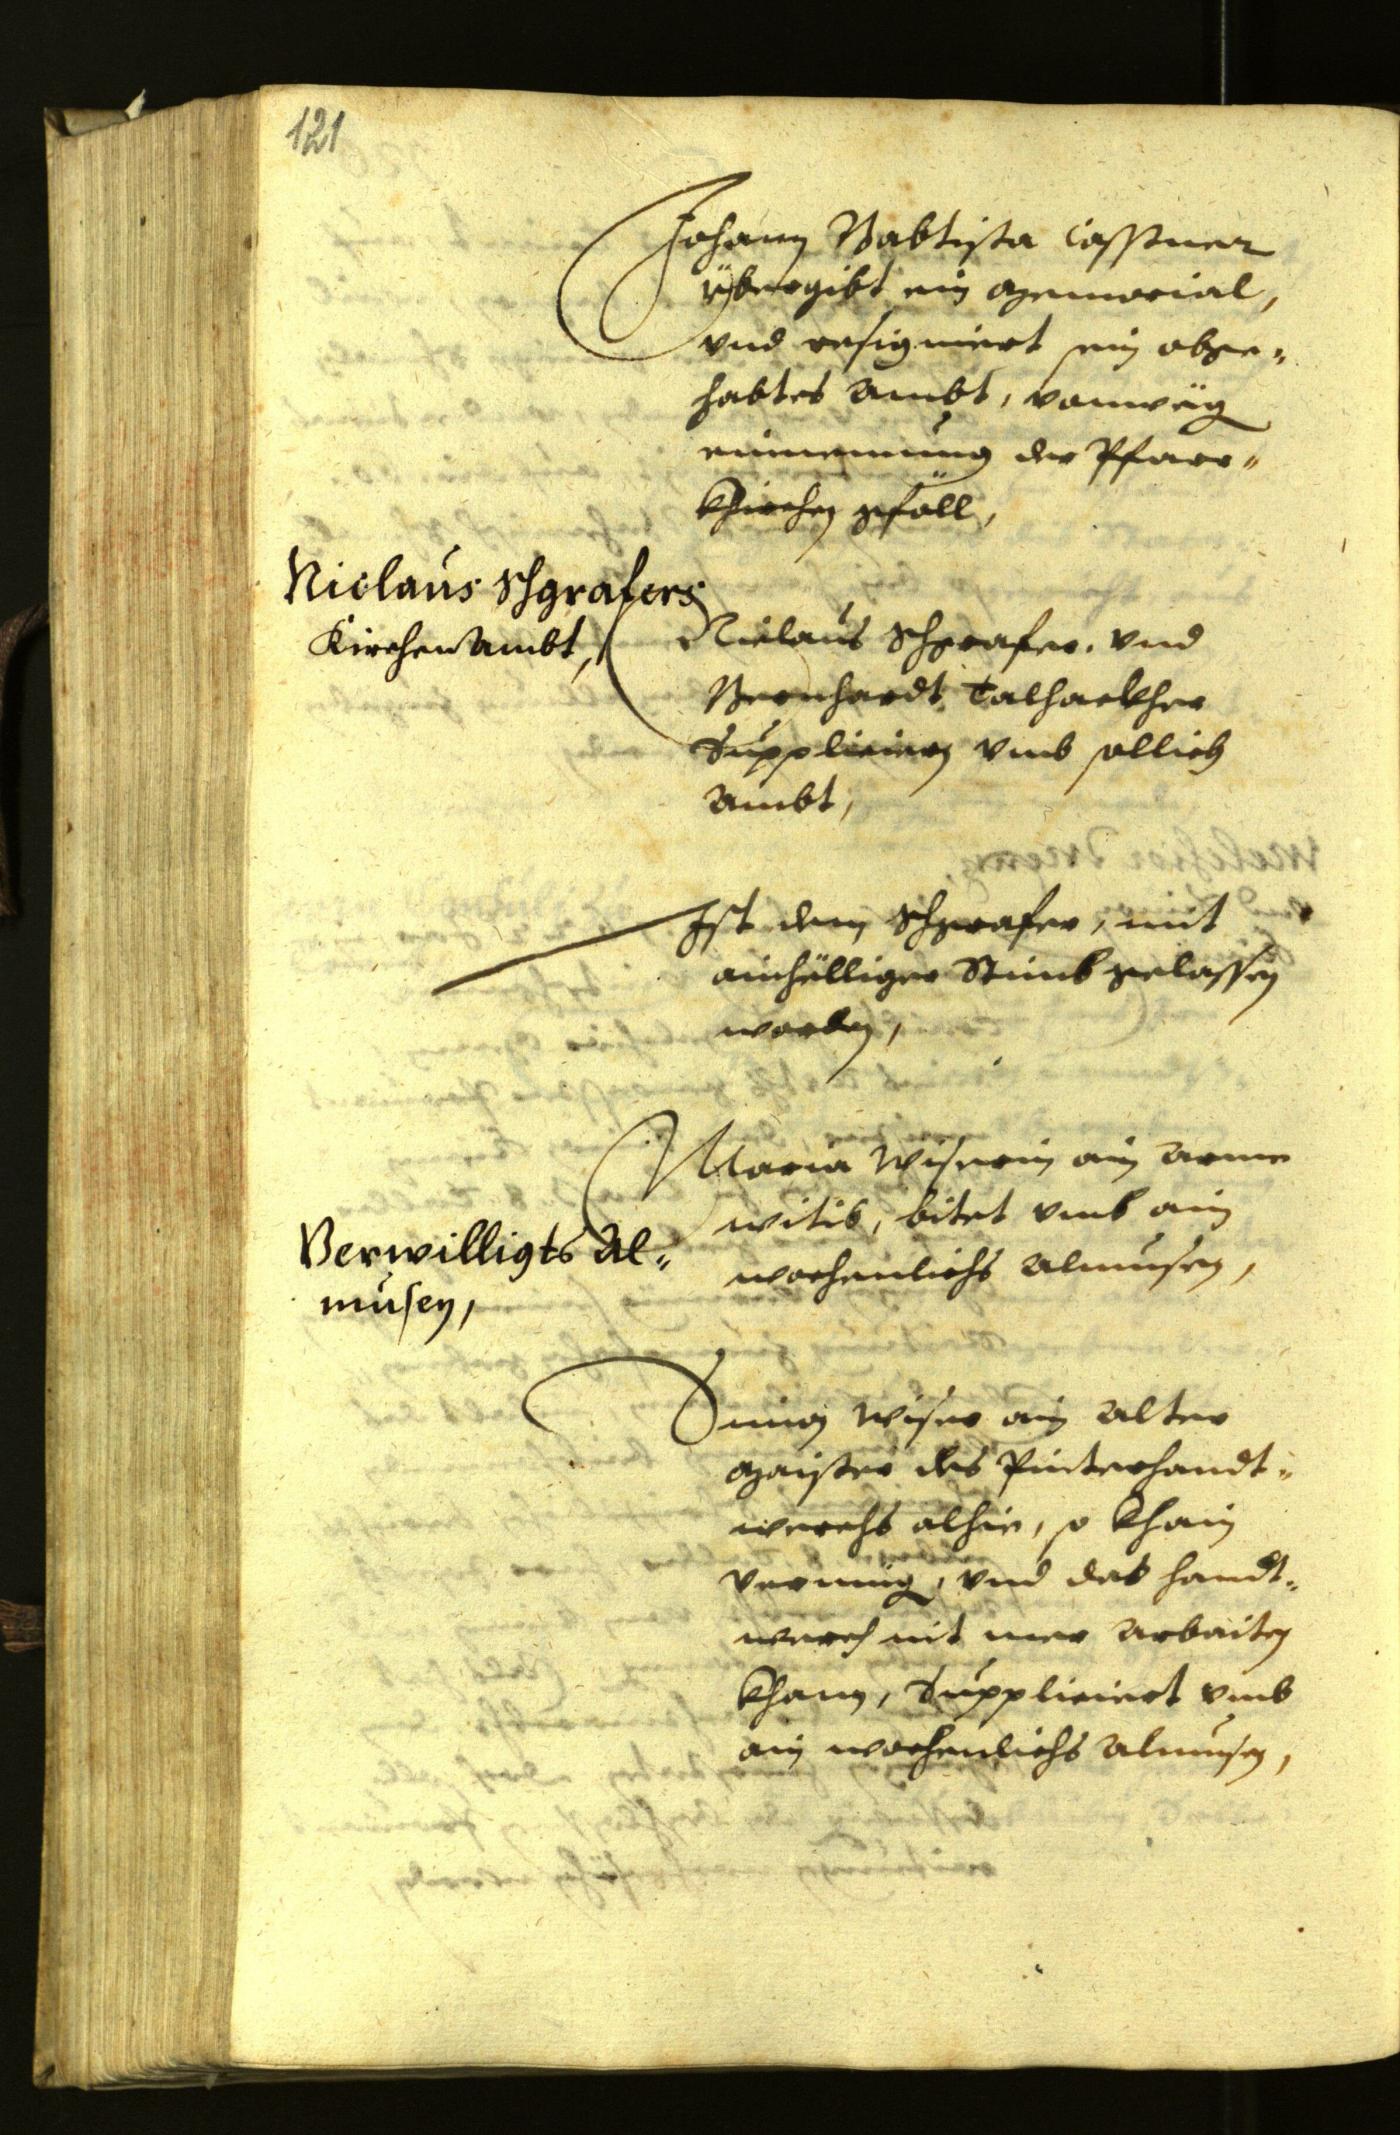 121
Johann Babtista Casstner
ybergibt ein Memorial,
vnd resigniert sein abge-
habtes Ambt, vonweg
einnemung der Pfarr-
khirchen gföll,
Niclaus Schgrafers
Kirchen Ambt,
Niclaus Schgrafer, vnd
Bernhardt Talhackher
Supplicieren vmb sollich
Ambt,
Ist dem Schgrafer, mit
ainhölliger Stimb gelassen
worden,
Maria Wiserin ain Arme
witib, bitet vmb ain
wochenlichs Almusen,
Verwilligts Al-
musen,
Simon Wiser ain Alter
Maister des Pinterhandt-
werchs alhie, so khain
vermüg, vnd das handt-
werch nit mer Arbaiten
khann, Suppliciert vmb
ain wochenlichs Almusen,